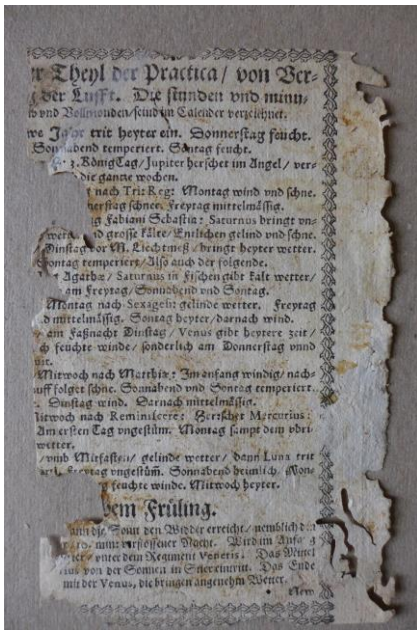 Theyl der Practica/ von Ver-
der Lufft. Die stunden vnd minu-
vnd Vollmonden/ seind im Calender verzeichnet.
trit heyter ein. Donnerstag feucht.
Sonnabend temperiert. Sontag feucht.
3. König Tag/ Jupiter herschet im Angel/ ver-
die gantze wochen.
nach Tri: Reg: Montag wind vnd schne.
schnee. Freytag mittelmässig.
Fabiani Sebastia: Saturnus bringt vn-
vnd grosse kälte/ Entlichen gelind vnd schne.
Dinstag vor M. Liechtmeß/ bringt heyter wetter.
Sontag temperiert/ Also auch der folgende.
Agathæ/ Saturnus in Fischen gibt kalt wetter/
am Freytag/ Sonnabend vnd Sontag.
Montag nach Sexages: gelinde wetter. Freytag
mittelmässig. Sontag heyter/ darnach wind.
am Faßnacht Dinstag/ Venus gibt heytere zeit/
feuchte winde/ sonderlich am Donnerstag vnnd
Mitwoch nach Matthiæ: Im anfang windig/ nach-
folget schne. Sonnabend vnd Sontag temperiert.
Dinstag wind. Darnach mittelmässig.
Mitwoch nach Reminiscere: Herscher Mercurius:
Am ersten Tag vngestüm. Montag sampt dem vbri-
wetter.
vmb Mitfasten/ gelinde wetter/ dann Luna trit
Freytag vngestüm. Sonnabend heimlich/ Mon-
feuchte winde. Mitwoch heyter.
dem Früling.
die Sonn den Widder erreicht/ nemblich den
verflossener Nacht. Wird im Anfang
vnter dem Regiment Veneris. Das Mittel
von der Sonnen in Das Ende
mit der Venus, die bringen angenehm Wetter.
New